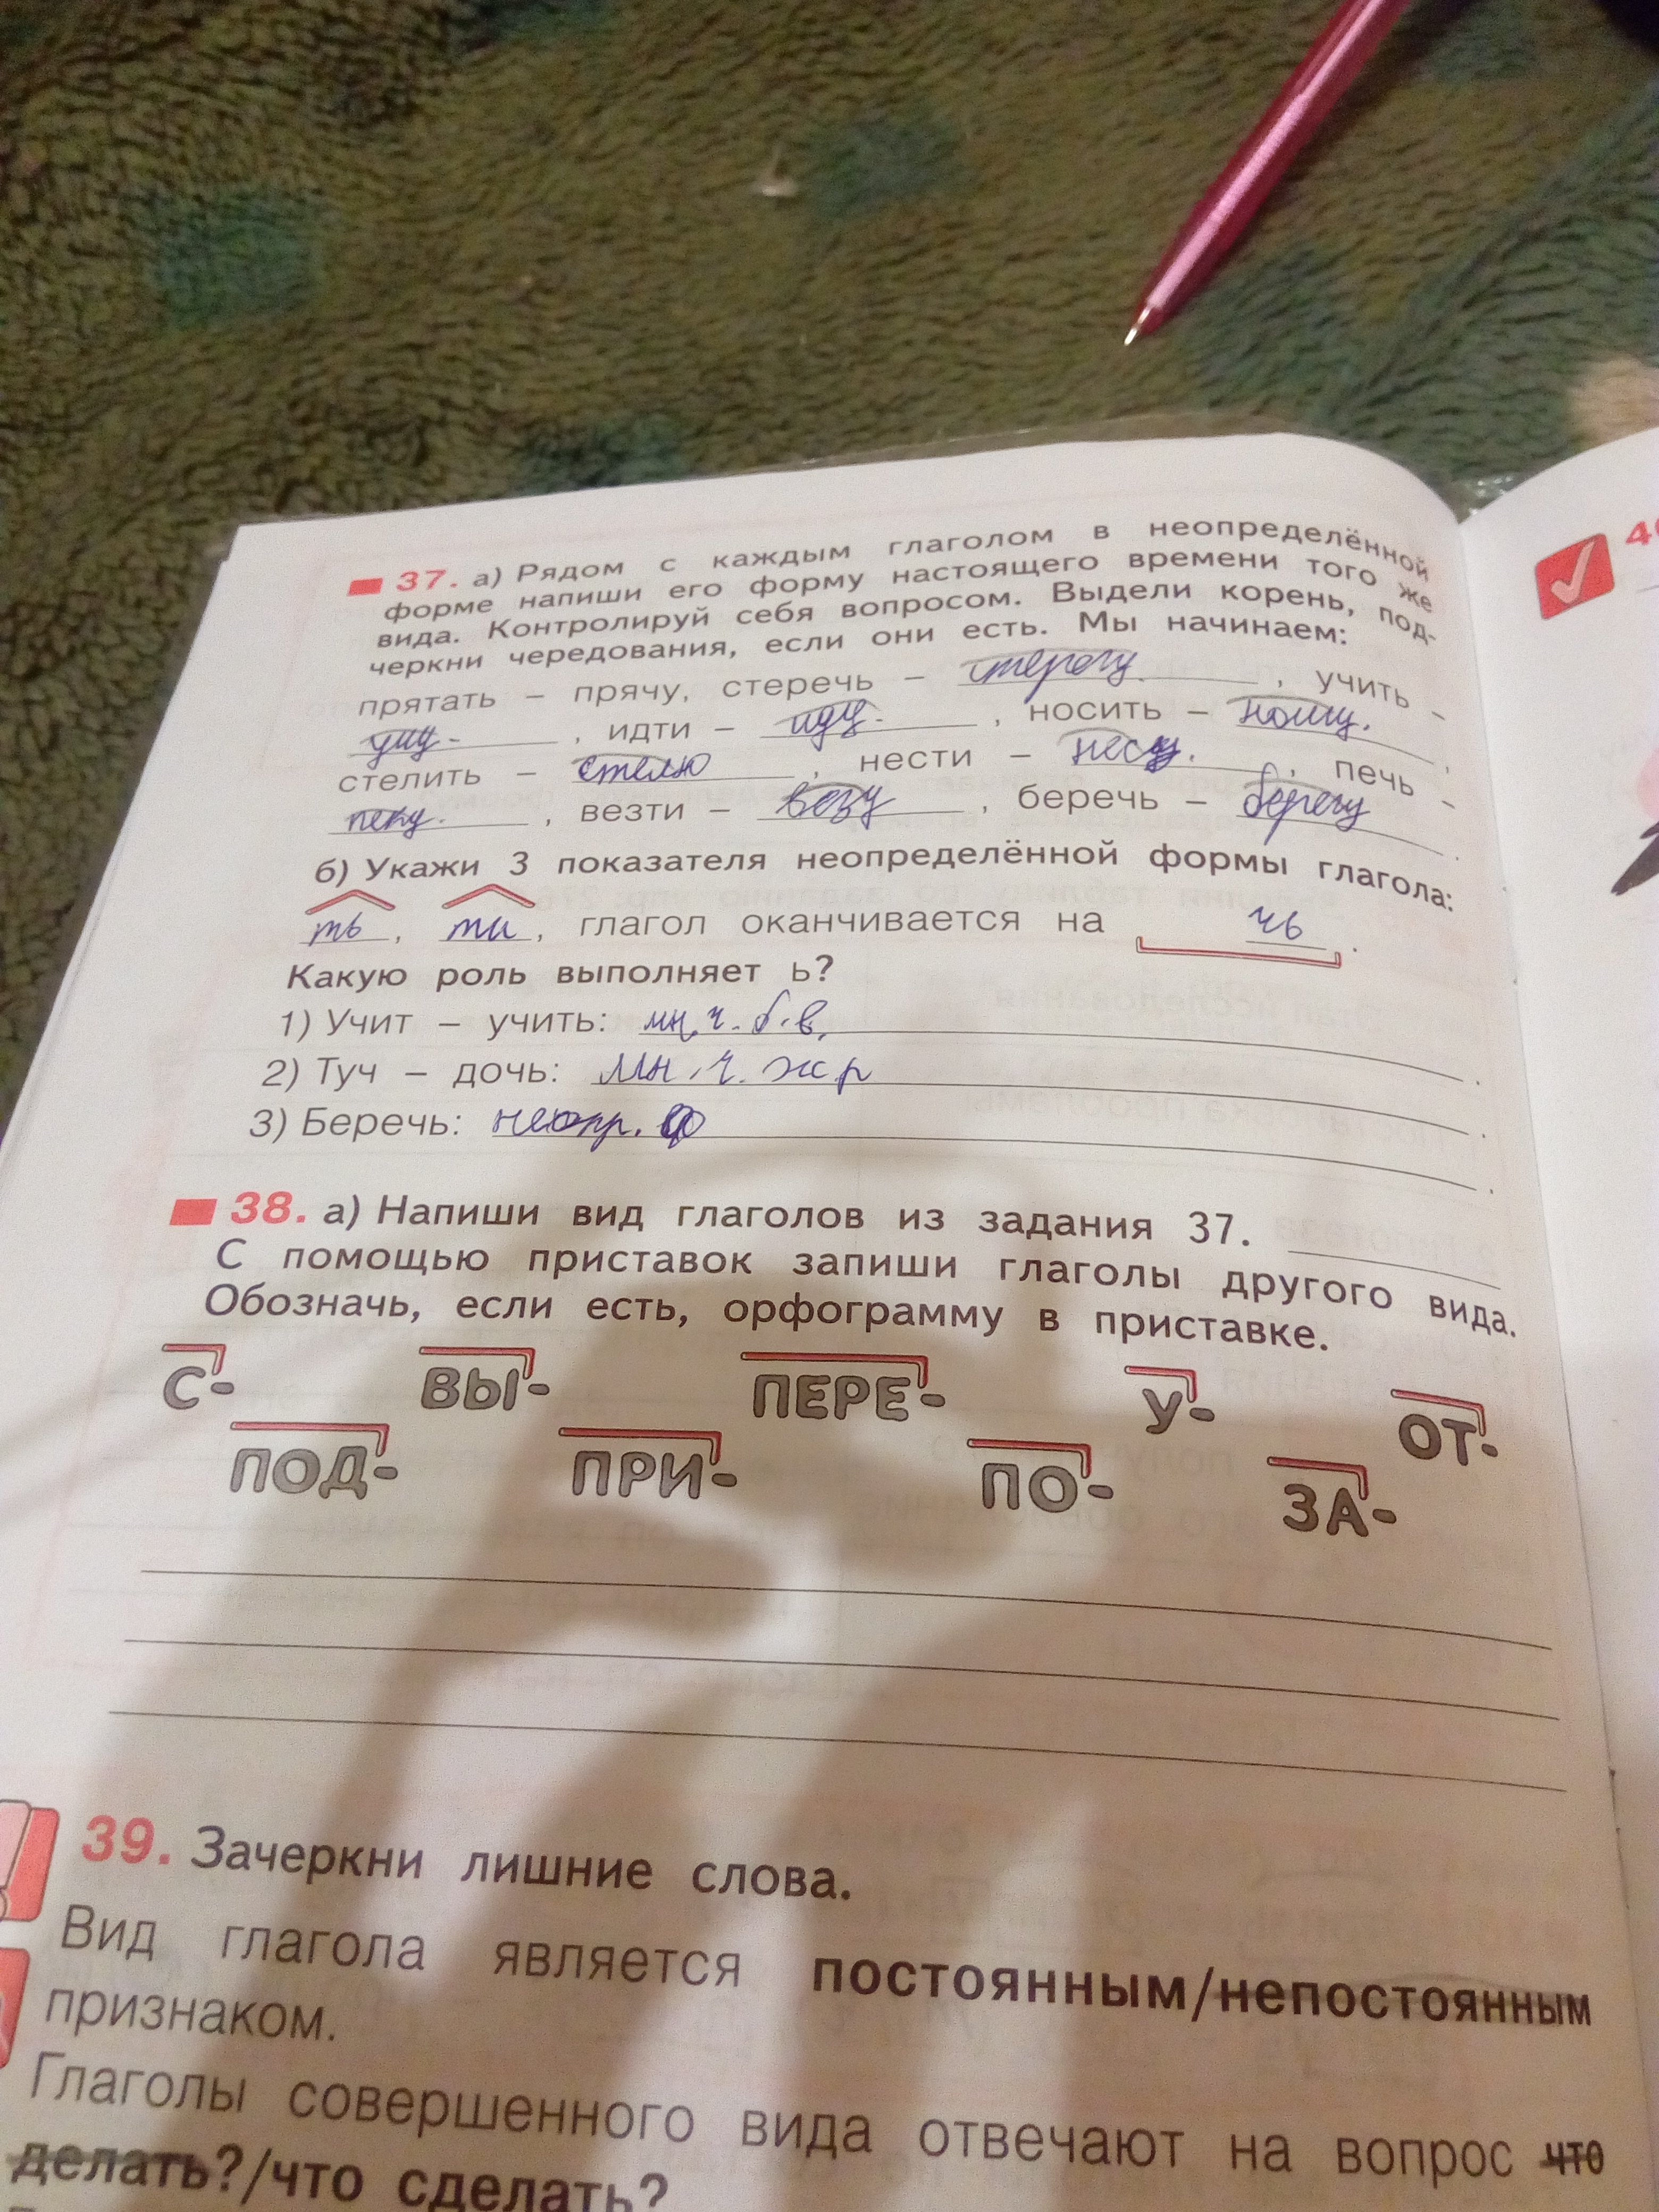 37. а) Рядом с каждым глаголом в неопределённой
форме напиши его форму настоящего времени того же
вида. Контролируй себя вопросом. Выдели корень, под-
черкни чередования, если они есть. Мы начинаем:
прятать – прячу, стеречь – стерегу, учить –
учу, идти – иду, носить – ношу,
стелить – стелю, нести – несу, печь –
пеку, везти – везу, беречь – берегу.
б) Укажи 3 показателя неопределённой формы глагола:
ть, ти, глагол оканчивается на чь.
Какую роль выполняет ь?
1) Учит – учить: мн.ч. б.в.
2) Туч – дочь: мн.ч. ж р
3) Беречь: неопр. ф
38. а) Напиши вид глаголов из задания 37.
С помощью приставок запиши глаголы другого вида.
Обозначь, если есть, орфограмму в приставке.
С- ВЫ- ПЕРЕ- У- ОТ-
ПОД- ПРИ- ПО- ЗА-
39. Зачеркни лишние слова.
Вид глагола является постоянным/непостоянным
признаком.
Глаголы совершенного вида отвечают на вопрос что
делать?/что сделать?